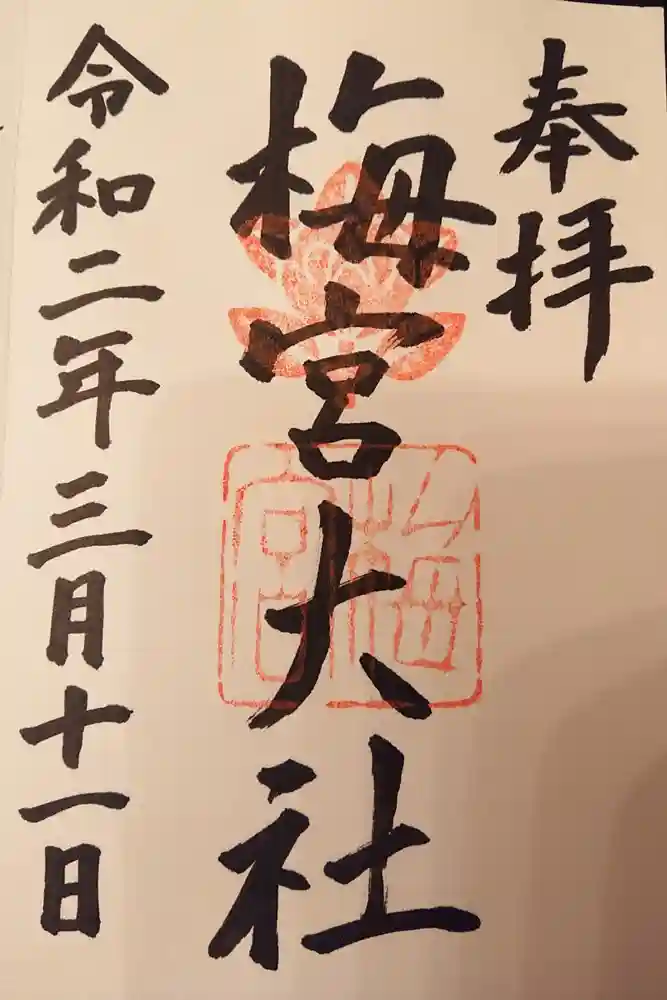 奉拝
梅宮大社
梅宮
令和二年三月十一日